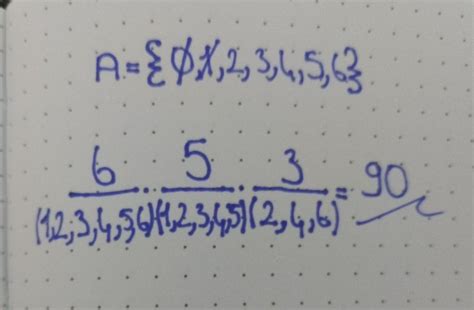 A={0,1,2,3,4,5,6}
6 . 5 . 3 = 90
(1,2,3,4,5,6) (1,2,3,4,5) (2,4,6)